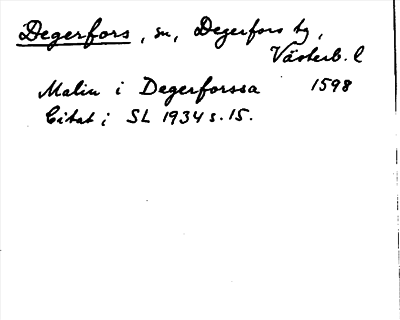 Degerfors, sn, Degerfors tg,
Västerb. l
Malin i Degerforssa 1598
Citat i SL 1934 s. 15.